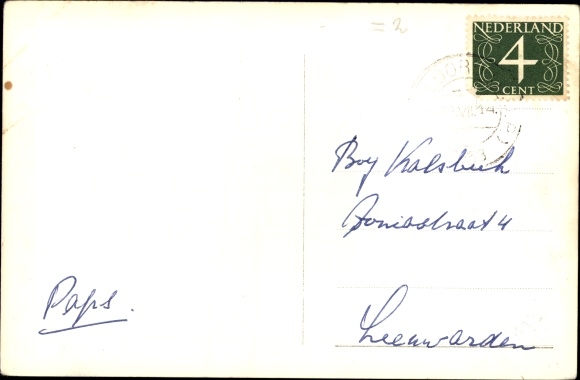 = 2
NEDERLAND
4
CENT
Boy Kalsbeek
Joniastraat 4
Leeuwarden
Paps.